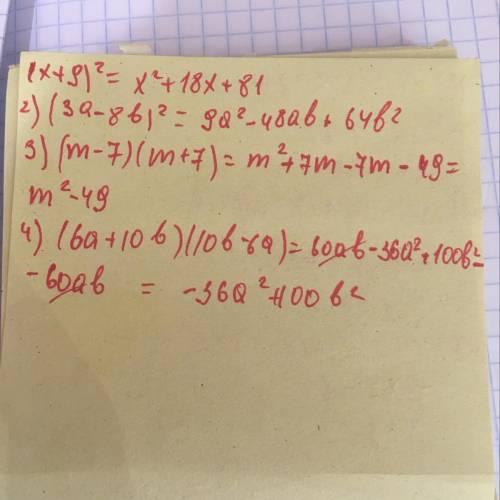 (x+9)² = x²+18x+81
2) (3a-8b)² = 9a²-48ab+64b²
3) (m-7)(m+7) = m²+7m-7m-49=
m²-49
4) (6a+10b)(10b-6a)=60ab-36a²+100b²-
-60ab = -36a²+100b²